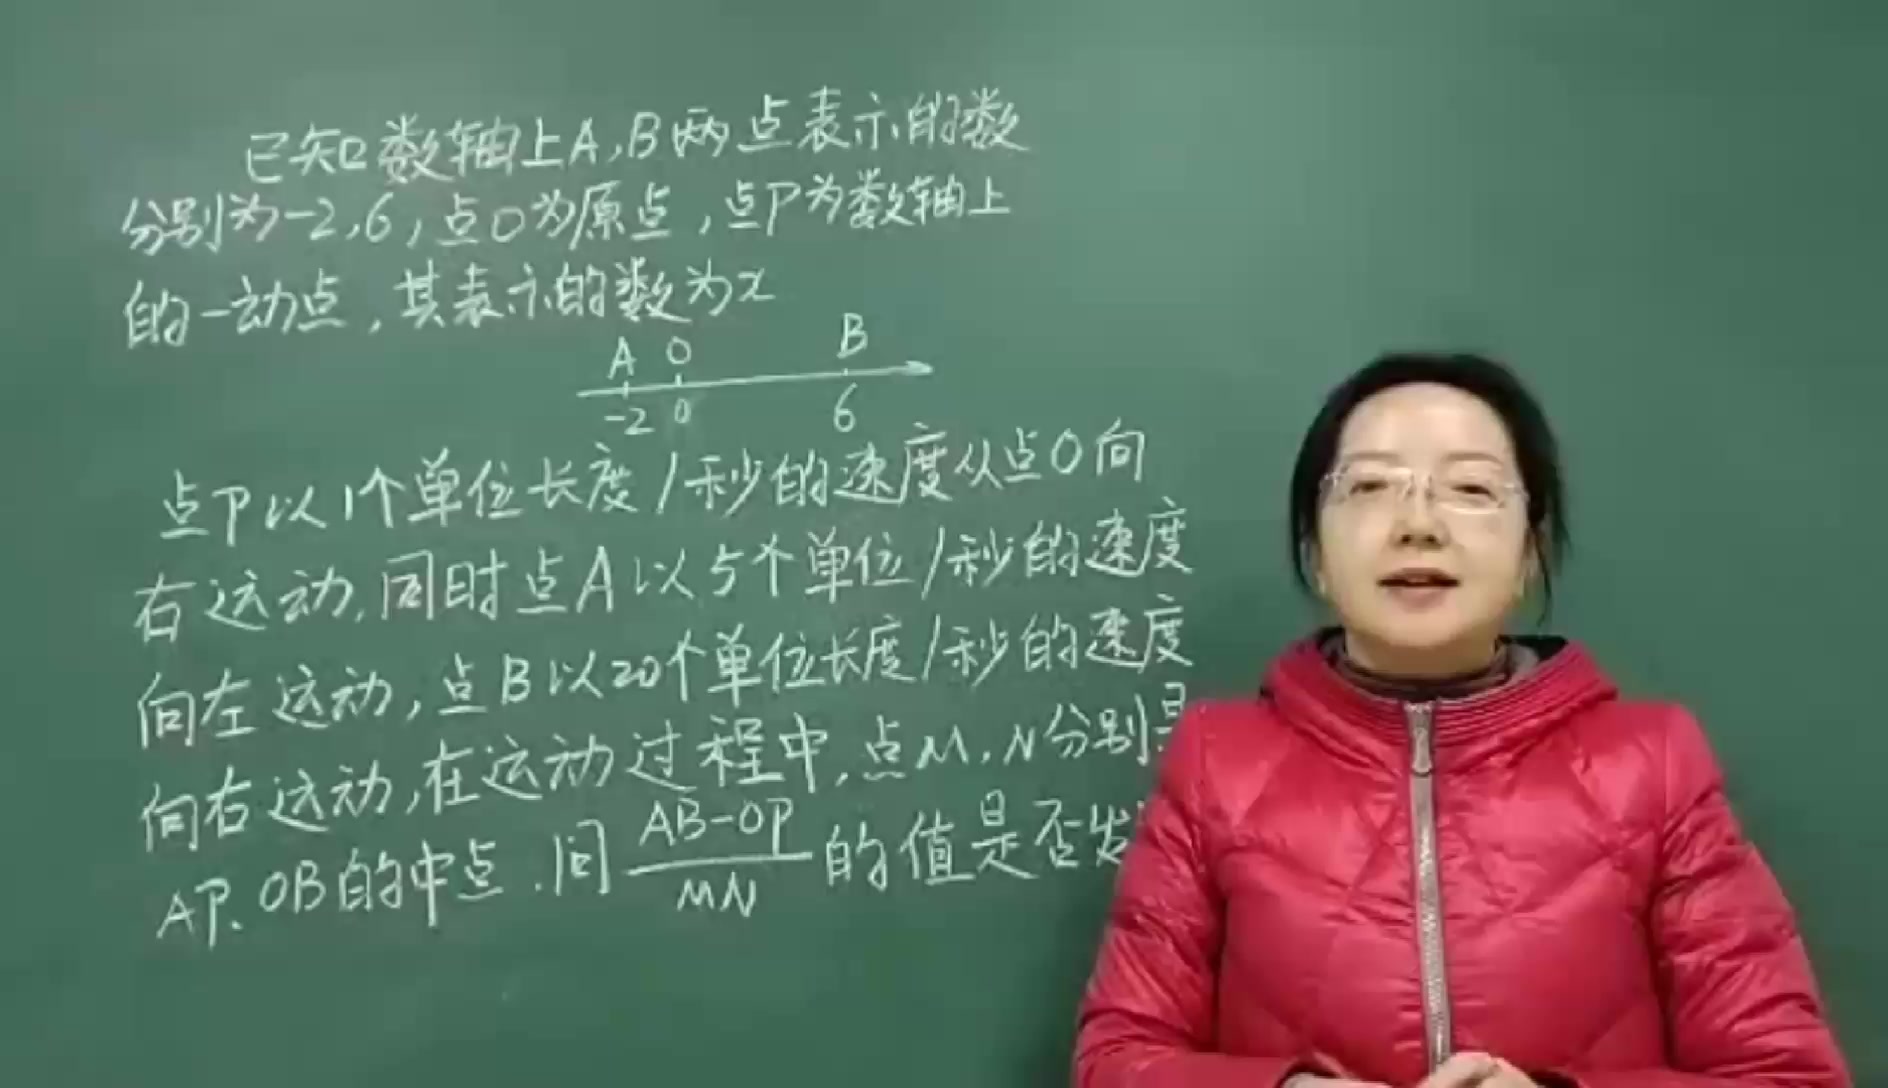 已知数轴上A,B两点表示的数
分别为-2,6,点O为原点,点P为数轴上
的一动点,其表示的数为x
A O B
-2 0 6
点P以1个单位长度/秒的速度从点O向
右运动,同时点A以5个单位/秒的速度
向左运动,点B以20个单位长度/秒的速度
向右运动,在运动过程中,点M,N分别是
AP、OB的中点.问 (AB-OP)/MN 的值是否发